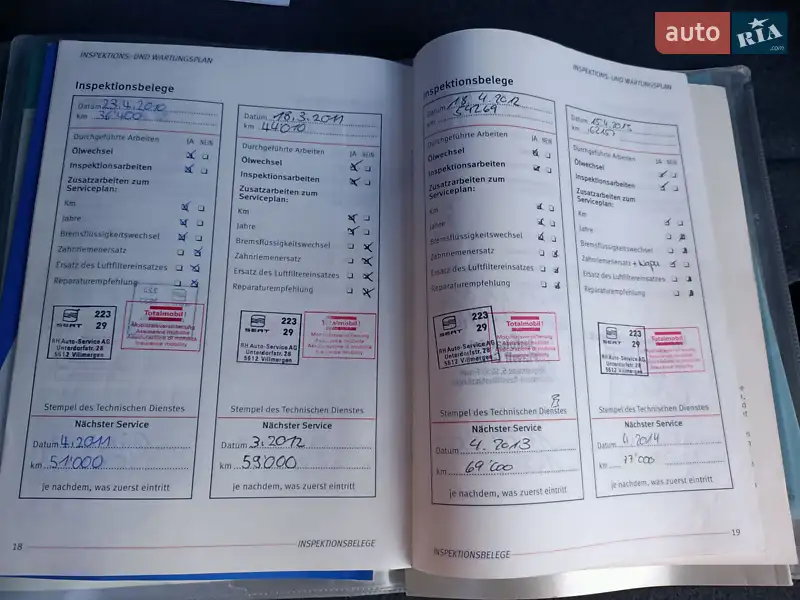 auto RIA .com
INSPEKTIONS- UND WARTUNGSPLAN
Inspektionsbelege
Datum 23.4.2010
km 36'400
Durchgeführte Arbeiten JA NEIN
Ölwechsel
Inspektionsarbeiten
Zusatzarbeiten zum
Serviceplan:
Km
Jahre
Bremsflüssigkeitswechsel
Zahnriemenersatz
Ersatz des Luftfiltereinsatzes
Reparaturempfehlung
SEAT
223
29
RH Auto-Service AG
Unterdorfstr. 28
5612 Villmergen
Totalmobil!
Mobilitätsversicherung
Assurance mobilité
Assicurazione di mobilità
Insurance mobility
Stempel des Technischen Dienstes
Nächster Service
Datum 4.2011
km 51'000
je nachdem, was zuerst eintritt
Datum 18.3.2011
km 44010
Durchgeführte Arbeiten JA NEIN
Ölwechsel
Inspektionsarbeiten
Zusatzarbeiten zum
Serviceplan:
Km
Jahre
Bremsflüssigkeitswechsel
Zahnriemenersatz
Ersatz des Luftfiltereinsatzes
Reparaturempfehlung
SEAT
223
29
RH Auto-Service AG
Unterdorfstr. 28
5612 Villmergen
Totalmobil!
Stempel des Technischen Dienstes
Nächster Service
Datum 3.2012
km 59'000
je nachdem, was zuerst eintritt
18
INSPEKTIONSBELEGE
INSPEKTIONS- UND WARTUNGSPLAN
Inspektionsbelege
Datum 18.4.2012
km 54269
Durchgeführte Arbeiten JA NEIN
Ölwechsel
Inspektionsarbeiten
Zusatzarbeiten zum
Serviceplan:
Km
Jahre
Bremsflüssigkeitswechsel
Zahnriemenersatz
Ersatz des Luftfiltereinsatzes
Reparaturempfehlung
SEAT
223
29
RH Auto-Service AG
Unterdorfstr. 28
5612 Villmergen
Totalmobil!
Stempel des Technischen Dienstes
Nächster Service
Datum 4.2013
km 69'000
je nachdem, was zuerst eintritt
Datum 15.4.2013
km 62157
Durchgeführte Arbeiten JA NEIN
Ölwechsel
Inspektionsarbeiten
Zusatzarbeiten zum
Serviceplan:
Km
Jahre
Bremsflüssigkeitswechsel
Zahnriemenersatz + Wapu
Ersatz des Luftfiltereinsatzes
Reparaturempfehlung
SEAT
223
29
RH Auto-Service AG
Unterdorfstr. 28
5612 Villmergen
Totalmobil!
Stempel des Technischen Dienstes
Nächster Service
Datum 4.2014
km 77'000
je nachdem, was zuerst eintritt
INSPEKTIONSBELEGE
19